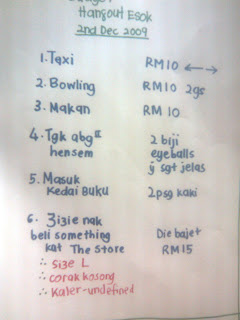 Budget
Hangout Esok
2nd Dec 2009
1. Taxi RM10 ←→
2. Bowling RM10 2gs
3. Makan RM 10
4. Tgk abg" 2 biji
hensem eyeballs
yg sgt jelas
5. Masuk
Kedai Buku 2psg kaki
6. 3izie nak
beli something Die bajet
kat The Store RM15
∴ size L
∴ corak kosong
∴ kaler-undefined